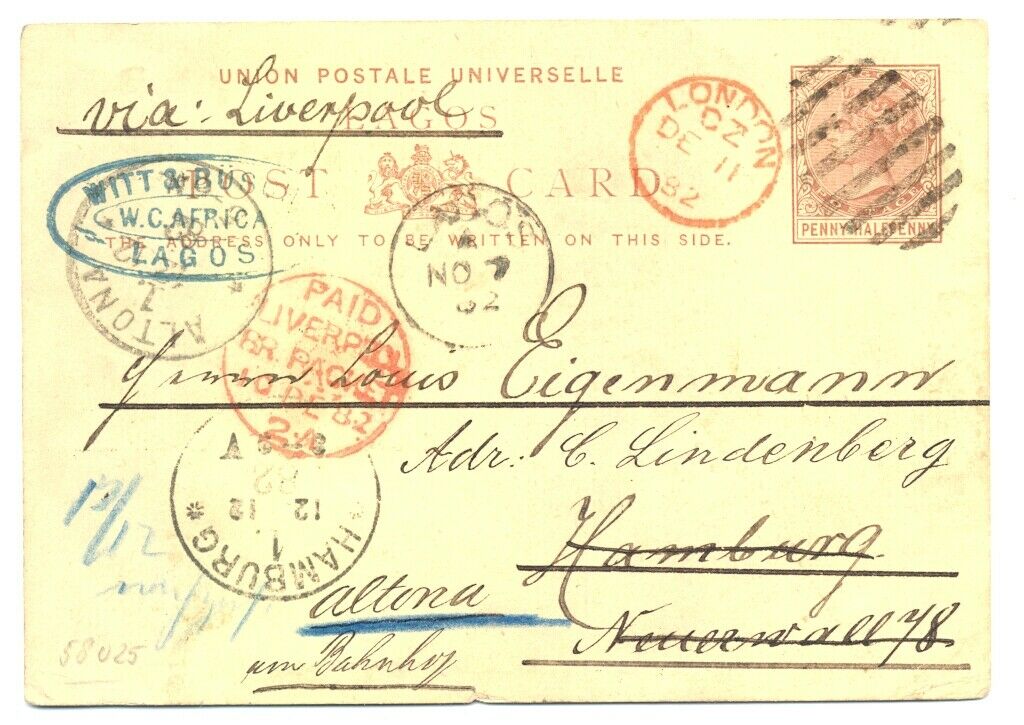 UNION POSTALE UNIVERSELLE
via: Liverpool
LAGOS
POST CARD
THE ADDRESS ONLY TO BE WRITTEN ON THIS SIDE.
LONDON
CZ
DE 11
82
PENNY HALFPENNY
WITT & BUSCH
W.C. AFRICA
LAGOS
ALTONA
LAGOS
NO 7
82
PAID
LIVERPOOL
BR. PACKET
10 DE 82
2A
Herrn Louis Eigenmann
Adr: C. Lindenberg
Hamburg
Neuerwall 78
altona
am Bahnhof
HAMBURG
1.
12 12
82
12/12
58025